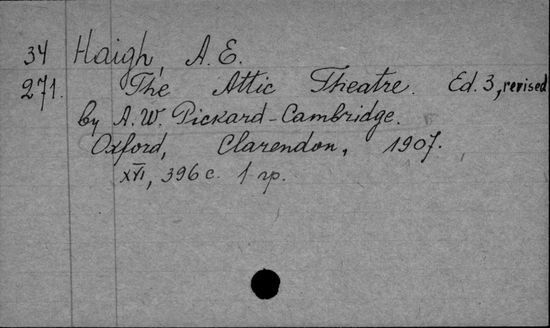 34 Haigh, A. E.
271. The Attic Theatre. Ed. 3, revised
by A. W. Pickard-Cambridge.
Oxford, Clarendon, 1907.
XVI, 396 c. 1 гр.